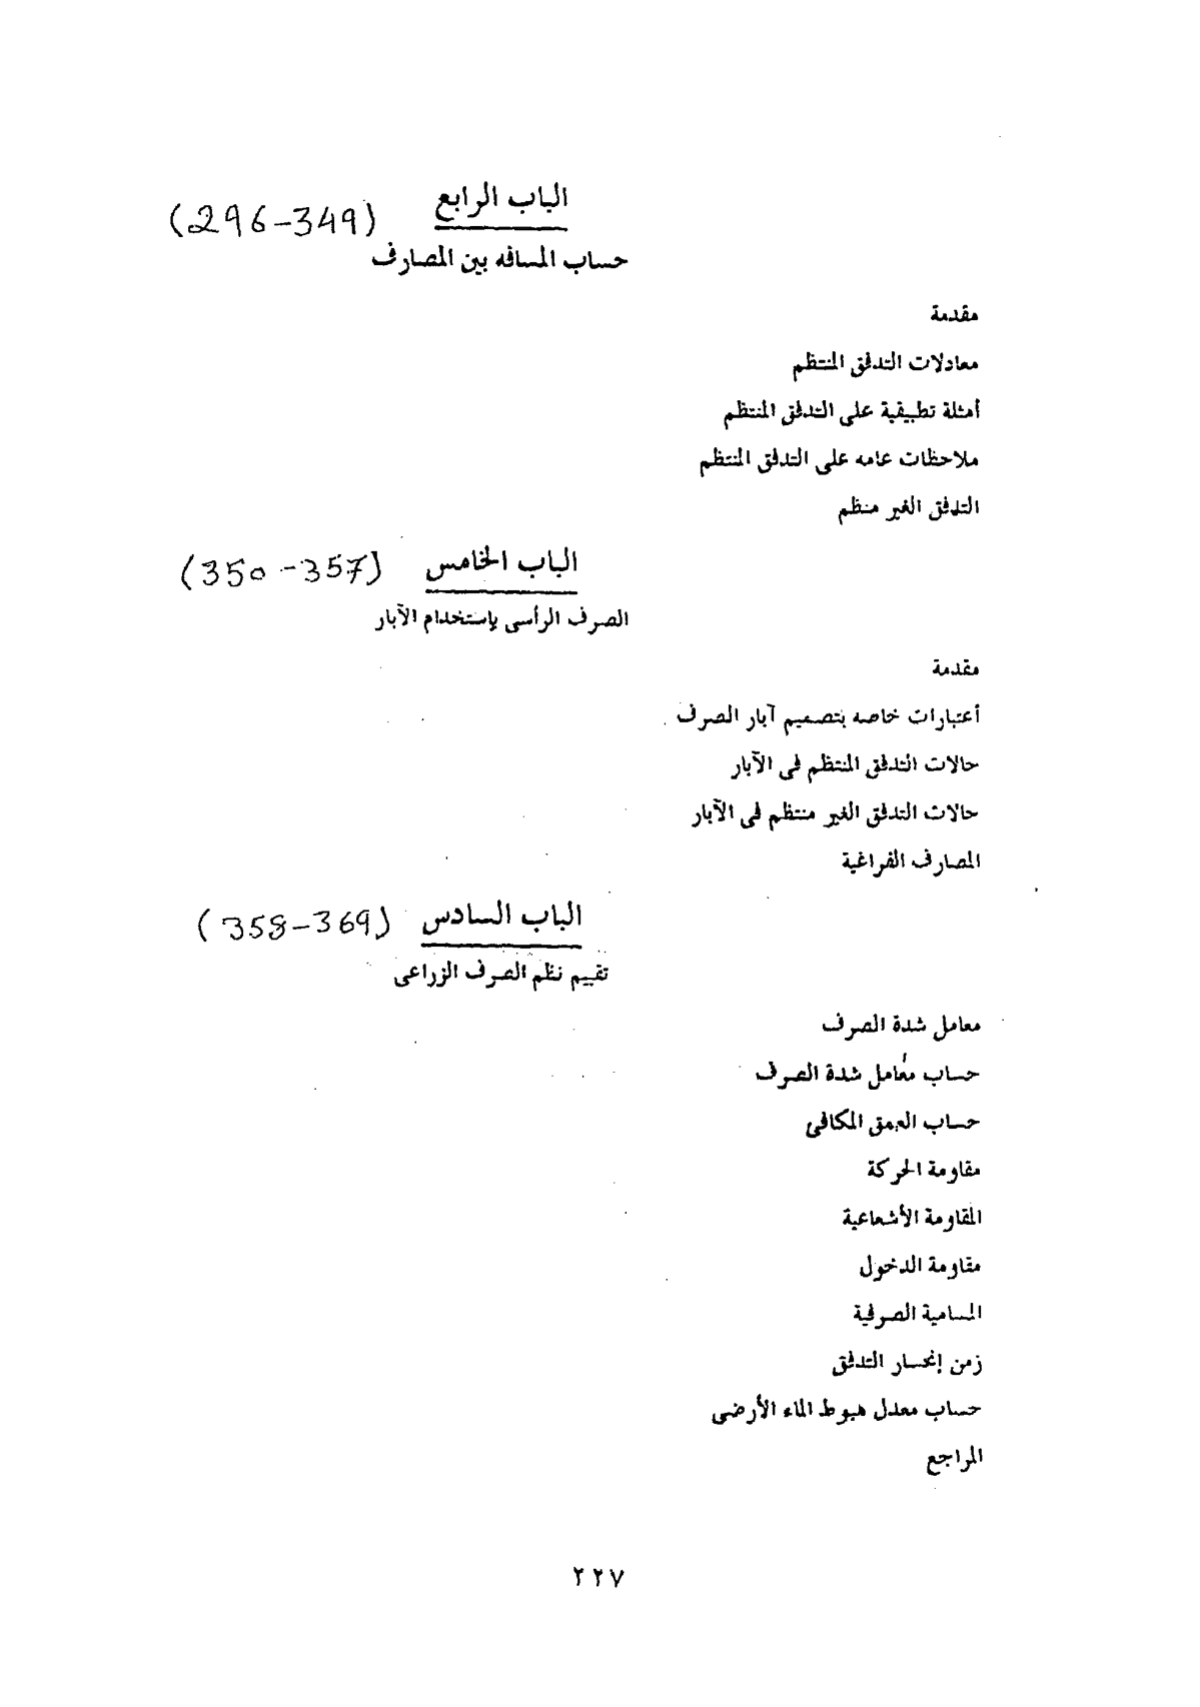 الباب الرابع (296-349)
حساب المسافه بين المصارف
مقدمة
معادلات التدفق المنتظم
أمثلة تطبيقية على التدفق المنتظم
ملاحظات عامه على التدفق المنتظم
التدفق الغير منظم
الباب الخامس (350-357)
الصرف الرأسى بإستخدام الآبار
مقدمة
أعتبارات خاصه بتصميم آبار الصرف
حالات التدفق المنتظم فى الآبار
حالات التدفق الغير منتظم فى الآبار
المصارف الفراغية
الباب السادس (358-369)
تقييم نظم الصرف الزراعى
معامل شدة الصرف
حساب مُعامل شدة الصرف
حساب العمق المكافئ
مقاومة الحركة
المقاومة الأشعاعية
مقاومة الدخول
المسامية الصرفية
زمن إنحسار التدفق
حساب معدل هبوط الماء الأرضى
المراجع
٢٢٧